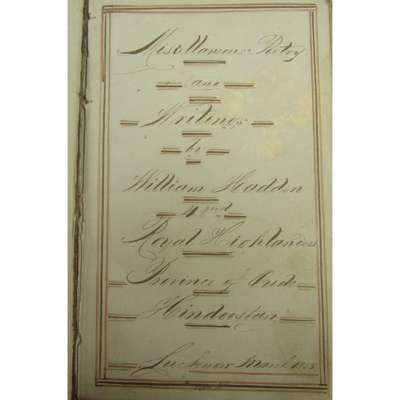 Miscellaneous Poetry
and
Writings
by
William Hadden
42nd
Royal Highlanders
Province of Oude
Hindoostan
Lucknow March